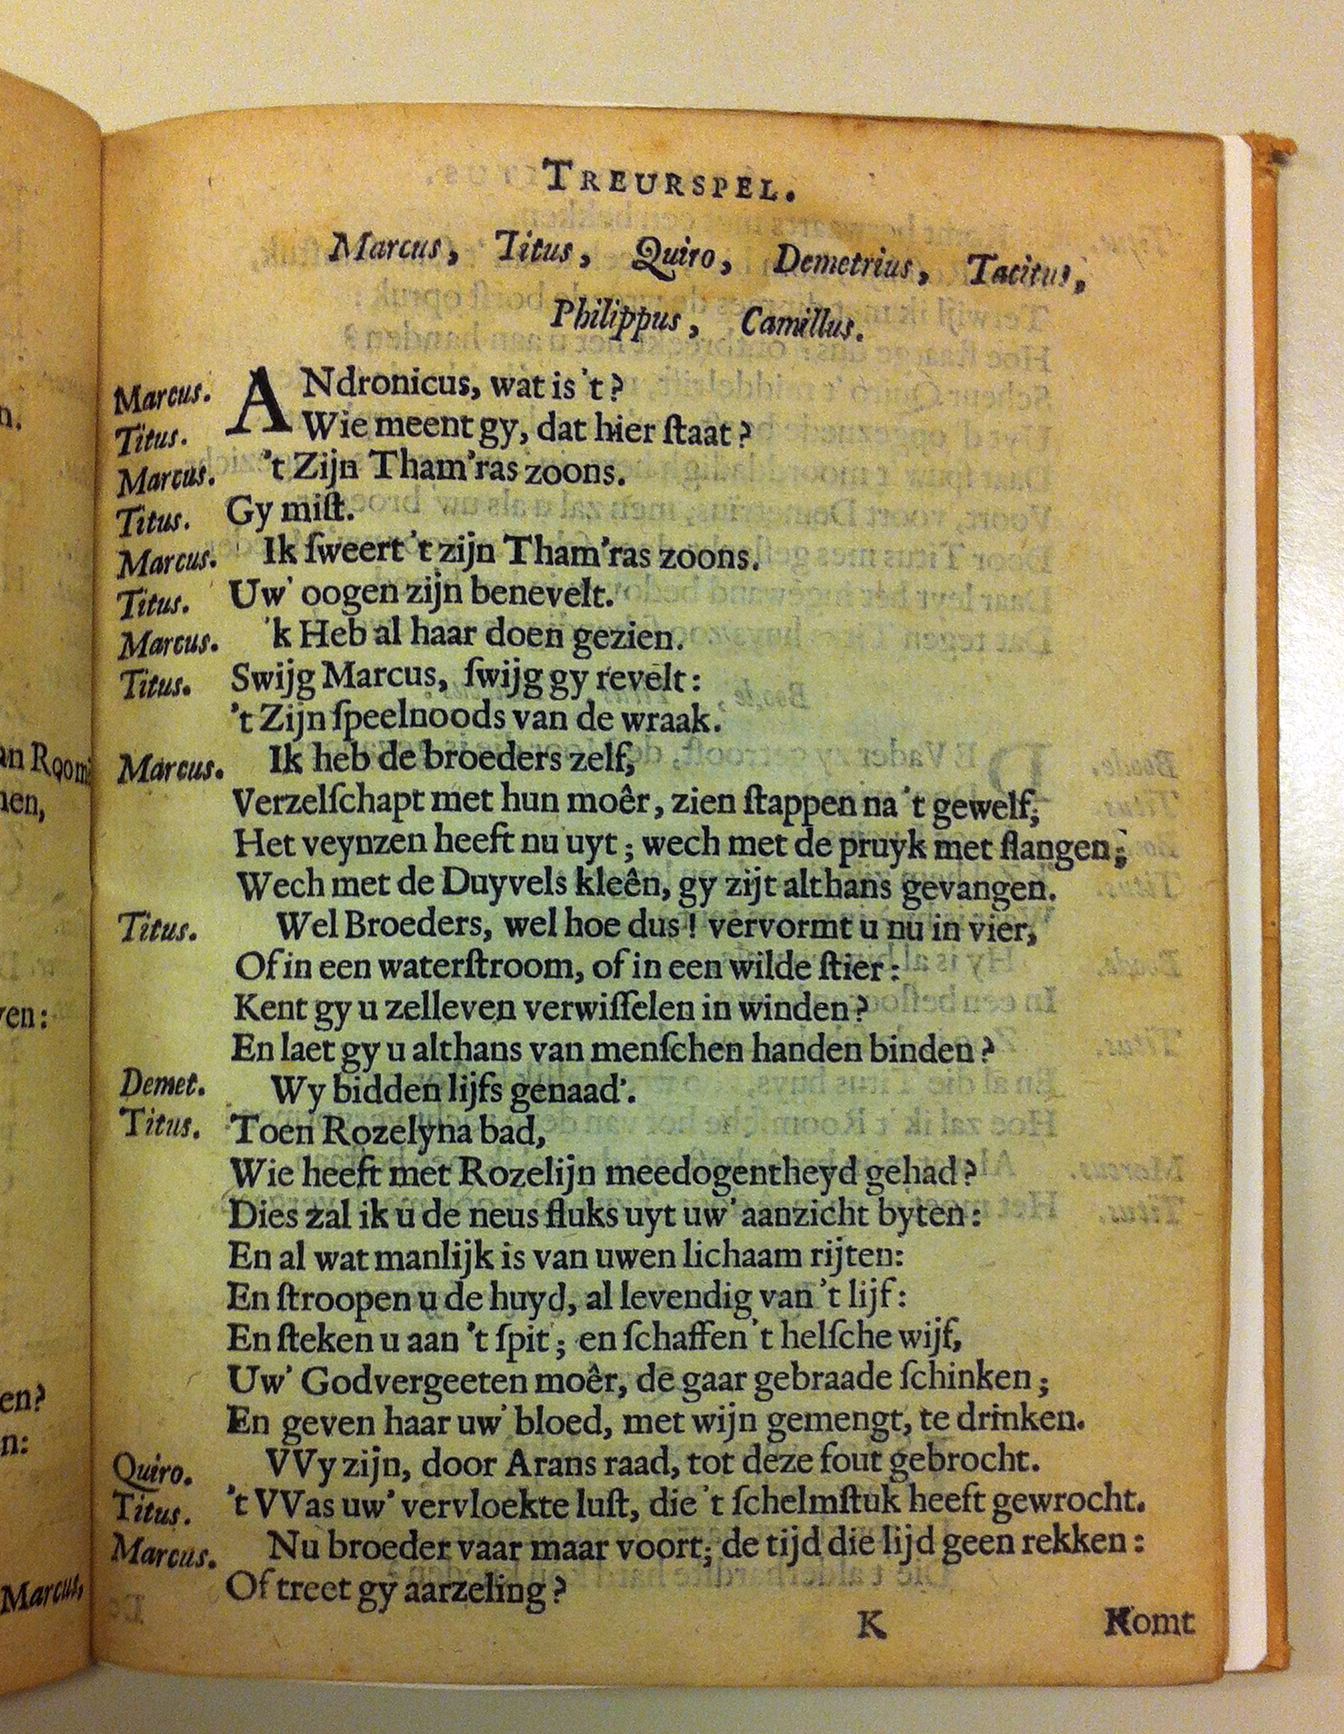 TREURSPEL.
Marcus, Titus, Quiro, Demetrius, Tacitus,
Philippus, Camillus.
Marcus. ANdronicus, wat is 't?
Titus. Wie meent gy, dat hier ſtaat?
Marcus. 't Zijn Tham'ras zoons.
Titus. Gy miſt.
Marcus. Ik ſweert 't zijn Tham'ras zoons.
Titus. Uw' oogen zijn benevelt.
Marcus. 'k Heb al haar doen gezien.
Titus. Swijg Marcus, ſwijg gy revelt:
't Zijn ſpeelnoods van de wraak.
Marcus. Ik heb de broeders zelf,
Verzelſchapt met hun moêr, zien ſtappen na 't gewelf;
Het veynzen heeft nu uyt; wech met de pruyk met ſlangen;
Wech met de Duyvels kleên, gy zijt althans gevangen.
Titus. Wel Broeders, wel hoe dus! vervormt u nu in vier,
Of in een waterſtroom, of in een wilde ſtier:
Kent gy u zelleven verwiſſelen in winden?
En laet gy u althans van menſchen handen binden?
Demet. Wy bidden lijfs genaad'.
Titus. Toen Rozelyna bad,
Wie heeft met Rozelijn meedogentheyd gehad?
Dies zal ik u de neus fluks uyt uw' aanzicht byten:
En al wat manlijk is van uwen lichaam rijten:
En ſtroopen u de huyd, al levendig van 't lijf:
En ſteken u aan 't ſpit; en ſchaffen 't helſche wijf,
Uw' Godvergeeten moêr, de gaar gebraade ſchinken;
En geven haar uw' bloed, met wijn gemengt, te drinken.
Quiro. VVy zijn, door Arans raad, tot deze fout gebrocht.
Titus. 't VVas uw' vervloekte luſt, die 't ſchelmſtuk heeft gewrocht.
Marcus. Nu broeder vaar maar voort; de tijd die lijd geen rekken:
Of treet gy aarzeling?
K Komt